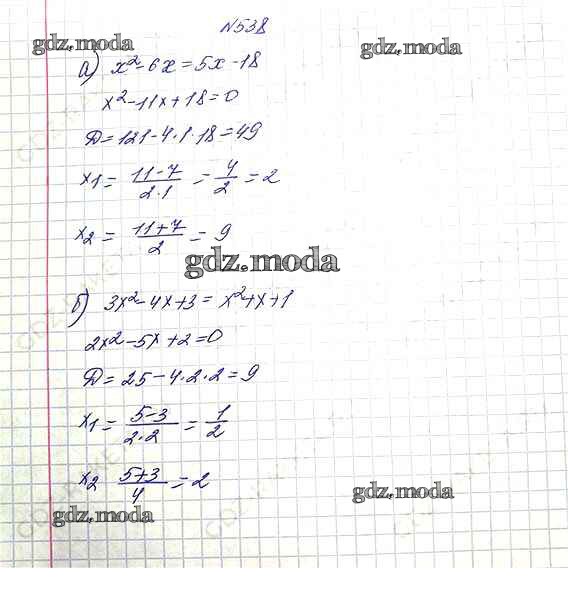 N538
gdz.moda
gdz.moda
а) x² - 6x = 5x - 18
x² - 11x + 18 = 0
Д = 121 - 4·1·18 = 49
x1 = (11-7)/(2·1) = 4/2 = 2
x2 = (11+7)/2 = 9
gdz.moda
б) 3x² - 4x + 3 = x² + x + 1
2x² - 5x + 2 = 0
Д = 25 - 4·2·2 = 9
gdz.moda
x1 = (5-3)/(2·2) = 1/2
x2 (5+3)/4 = 2
gdz.moda
gdz.moda